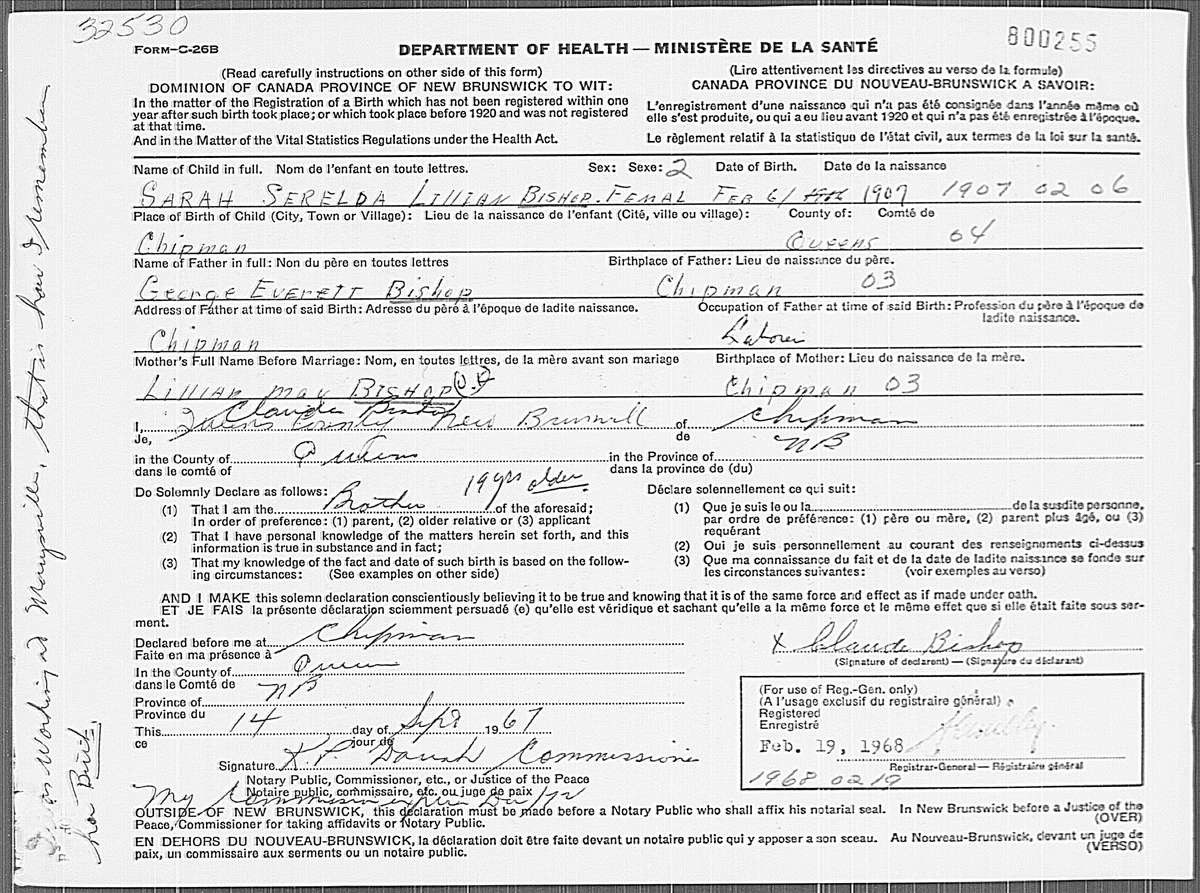 32530
FORM-C-26B
DEPARTMENT OF HEALTH — MINISTÈRE DE LA SANTÉ
800255
(Read carefully instructions on other side of this form)
DOMINION OF CANADA PROVINCE OF NEW BRUNSWICK TO WIT:
In the matter of the Registration of a Birth which has not been registered within one
year after such birth took place; or which took place before 1920 and was not registered
at that time.
And in the Matter of the Vital Statistics Regulations under the Health Act.
(Lire attentivement les directives au verso de la formule)
CANADA PROVINCE DU NOUVEAU-BRUNSWICK A SAVOIR:
L'enregistrement d'une naissance qui n'a pas été consignée dans l'année même où
elle s'est produite, ou qui a eu lieu avant 1920 et qui n'a pas été enregistrée à l'époque.
Le règlement relatif à la statistique de l'état civil, aux termes de la loi sur la santé.
Name of Child in full. Nom de l'enfant en toute lettres. Sex: Sexe: 2 Date of Birth. Date de la naissance
SARAH SERELDA LILLIAN BISHOP. FEMAL FEB 6/ 1907 1907 02 06
Place of Birth of Child (City, Town or Village): Lieu de la naissance de l'enfant (Cité, ville ou village): County of: Comté de
Chipman Queens 04
Name of Father in full: Non du père en toutes lettres Birthplace of Father: Lieu de naissance du père.
George EVERETT BISHOP Chipman 03
Address of Father at time of said Birth: Adresse du père à l'époque de ladite naissance. Occupation of Father at time of said Birth: Profession du père à l'époque de
ladite naissance.
Chipman Laborer
Mother's Full Name Before Marriage: Nom, en toutes lettres, de la mère avant son mariage Birthplace of Mother: Lieu de naissance de la mère.
LILLIAN MAY BISHOP Chipman 03
Claude Bishop
I, Queens County New Brunswick of Chipman
Je, de
in the County of Queens in the Province of NB
dans le comté of dans la province de (du)
Do Solemnly Declare as follows: 19 yrs older
(1) That I am the Brother of the aforesaid;
In order of preference: (1) parent, (2) older relative or (3) applicant
(2) That I have personal knowledge of the matters herein set forth, and this
information is true in substance and in fact;
(3) That my knowledge of the fact and date of such birth is based on the follow-
ing circumstances: (See examples on other side)
Déclare solennellement ce qui suit:
(1) Que je suis le ou la de la susdite personne,
par ordre de préférence: (1) père ou mère, (2) parent plus âgé, ou (3)
requérant
(2) Oui je suis personnellement au courant des renseignements ci-dessus
(3) Que ma connaissance du fait et de la date de ladite naissance se fonde sur
les circonstances suivantes: (voir exemples au verso)
AND I MAKE this solemn declaration conscientiously believing it to be true and knowing that it is of the same force and effect as if made under oath.
ET JE FAIS la présente déclaration sciemment persuadé (e) qu'elle est véridique et sachant qu'elle a la même force et le même effet que si elle était faite sous ser-
ment.
Declared before me at Chipman
Faite en ma présence à
In the County of Queen
dans le Comté de
Province of NB
Province du
This 14 day of Sept 1967
ce jour de
Signature K. P. Commissioner
Notary Public, Commissioner, etc., or Justice of the Peace
Notaire public, commissaire, etc. ou juge de paix
My Commission expires Dec
x Claude Bishop
(Signature of declarent) — (Signature du déclarant)
(For use of Reg.-Gen. only)
(A l'usage exclusif du registraire général)
Registered
Enregistré
Feb. 19, 1968
Registrar-General — Régistraire général
1968 02 19
OUTSIDE OF NEW BRUNSWICK, this declaration must be made before a Notary Public who shall affix his notarial seal. In New Brunswick before a Justice of the
Peace, Commissioner for taking affidavits or Notary Public.
(OVER)
EN DEHORS DU NOUVEAU-BRUNSWICK, la déclaration doit être faite devant un notaire public qui y apposer a son sceau. Au Nouveau-Brunswick, devant un juge de
paix, un commissaire aux serments ou un notaire public.
(VERSO)
I was Working at Marysville, that is how I remember
her Birth.